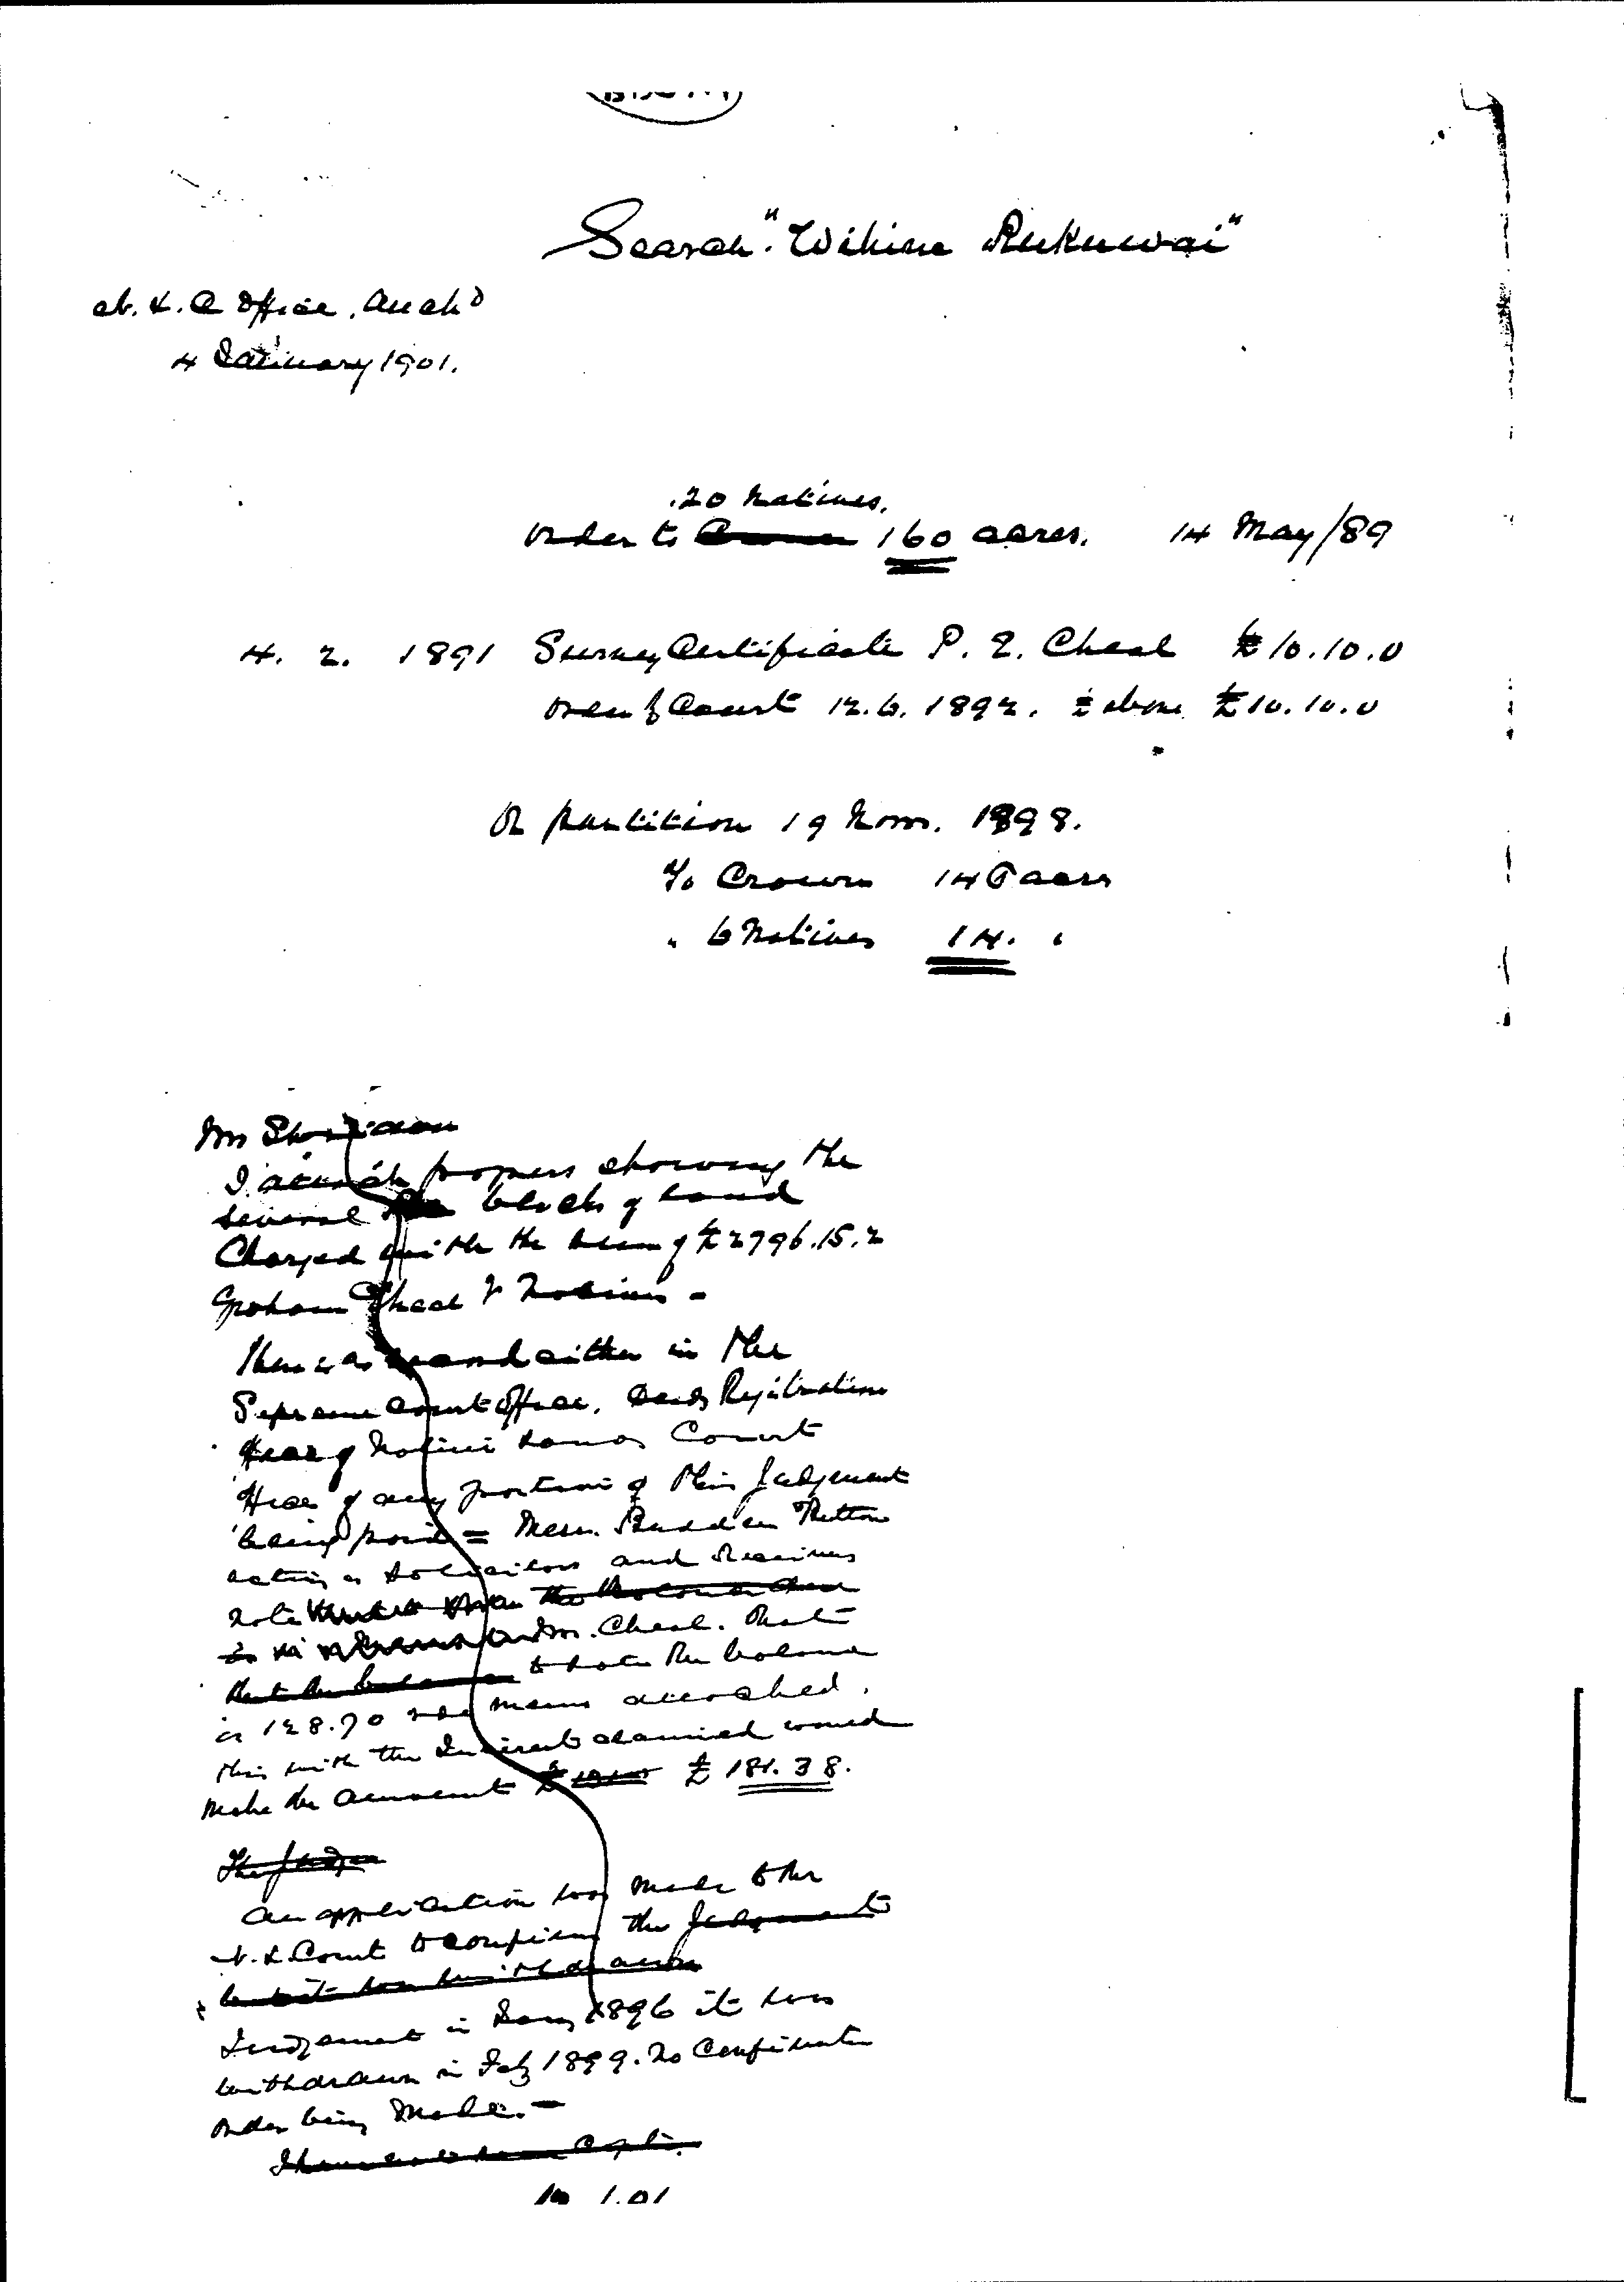 Search "Wihine Rukuwai"
N. L. C Office, Auckd
4 January 1901.
20 Natives.
Order to 160 acres. 14 May/89
4. 2. 1891 Survey Certificate P. E. Cheal £10.10.0
Order of Court 12.6.1892. above £10.10.0
On partition 19 Nov. 1898.
To Crown 146 acres
" 6 Natives 14. "
Mr Sheridan
I attach papers showing the
several blocks of land
Charged with the sum of £2796.15.2
Graham Cheal & Natives -
There is no record either in the
Supreme Court Office, Deeds Registration
Office of Native Lands Court
Office of any portion of this Judgement
being paid = Messrs
acting as Solicitors and Receivers
note
Mr. Cheal. that
that the balance to date the balance
is 128.70 see memo attached.
this with the Interest claimed would
make the amount £ £181.38.
The Judge
An application was made to the
N. L. Court to confirm the Judgement
but it was withdrawn
Judgement in Jany 1896 it was
withdrawn in Feb 1899. No Confirmation
order being made. -
1.01